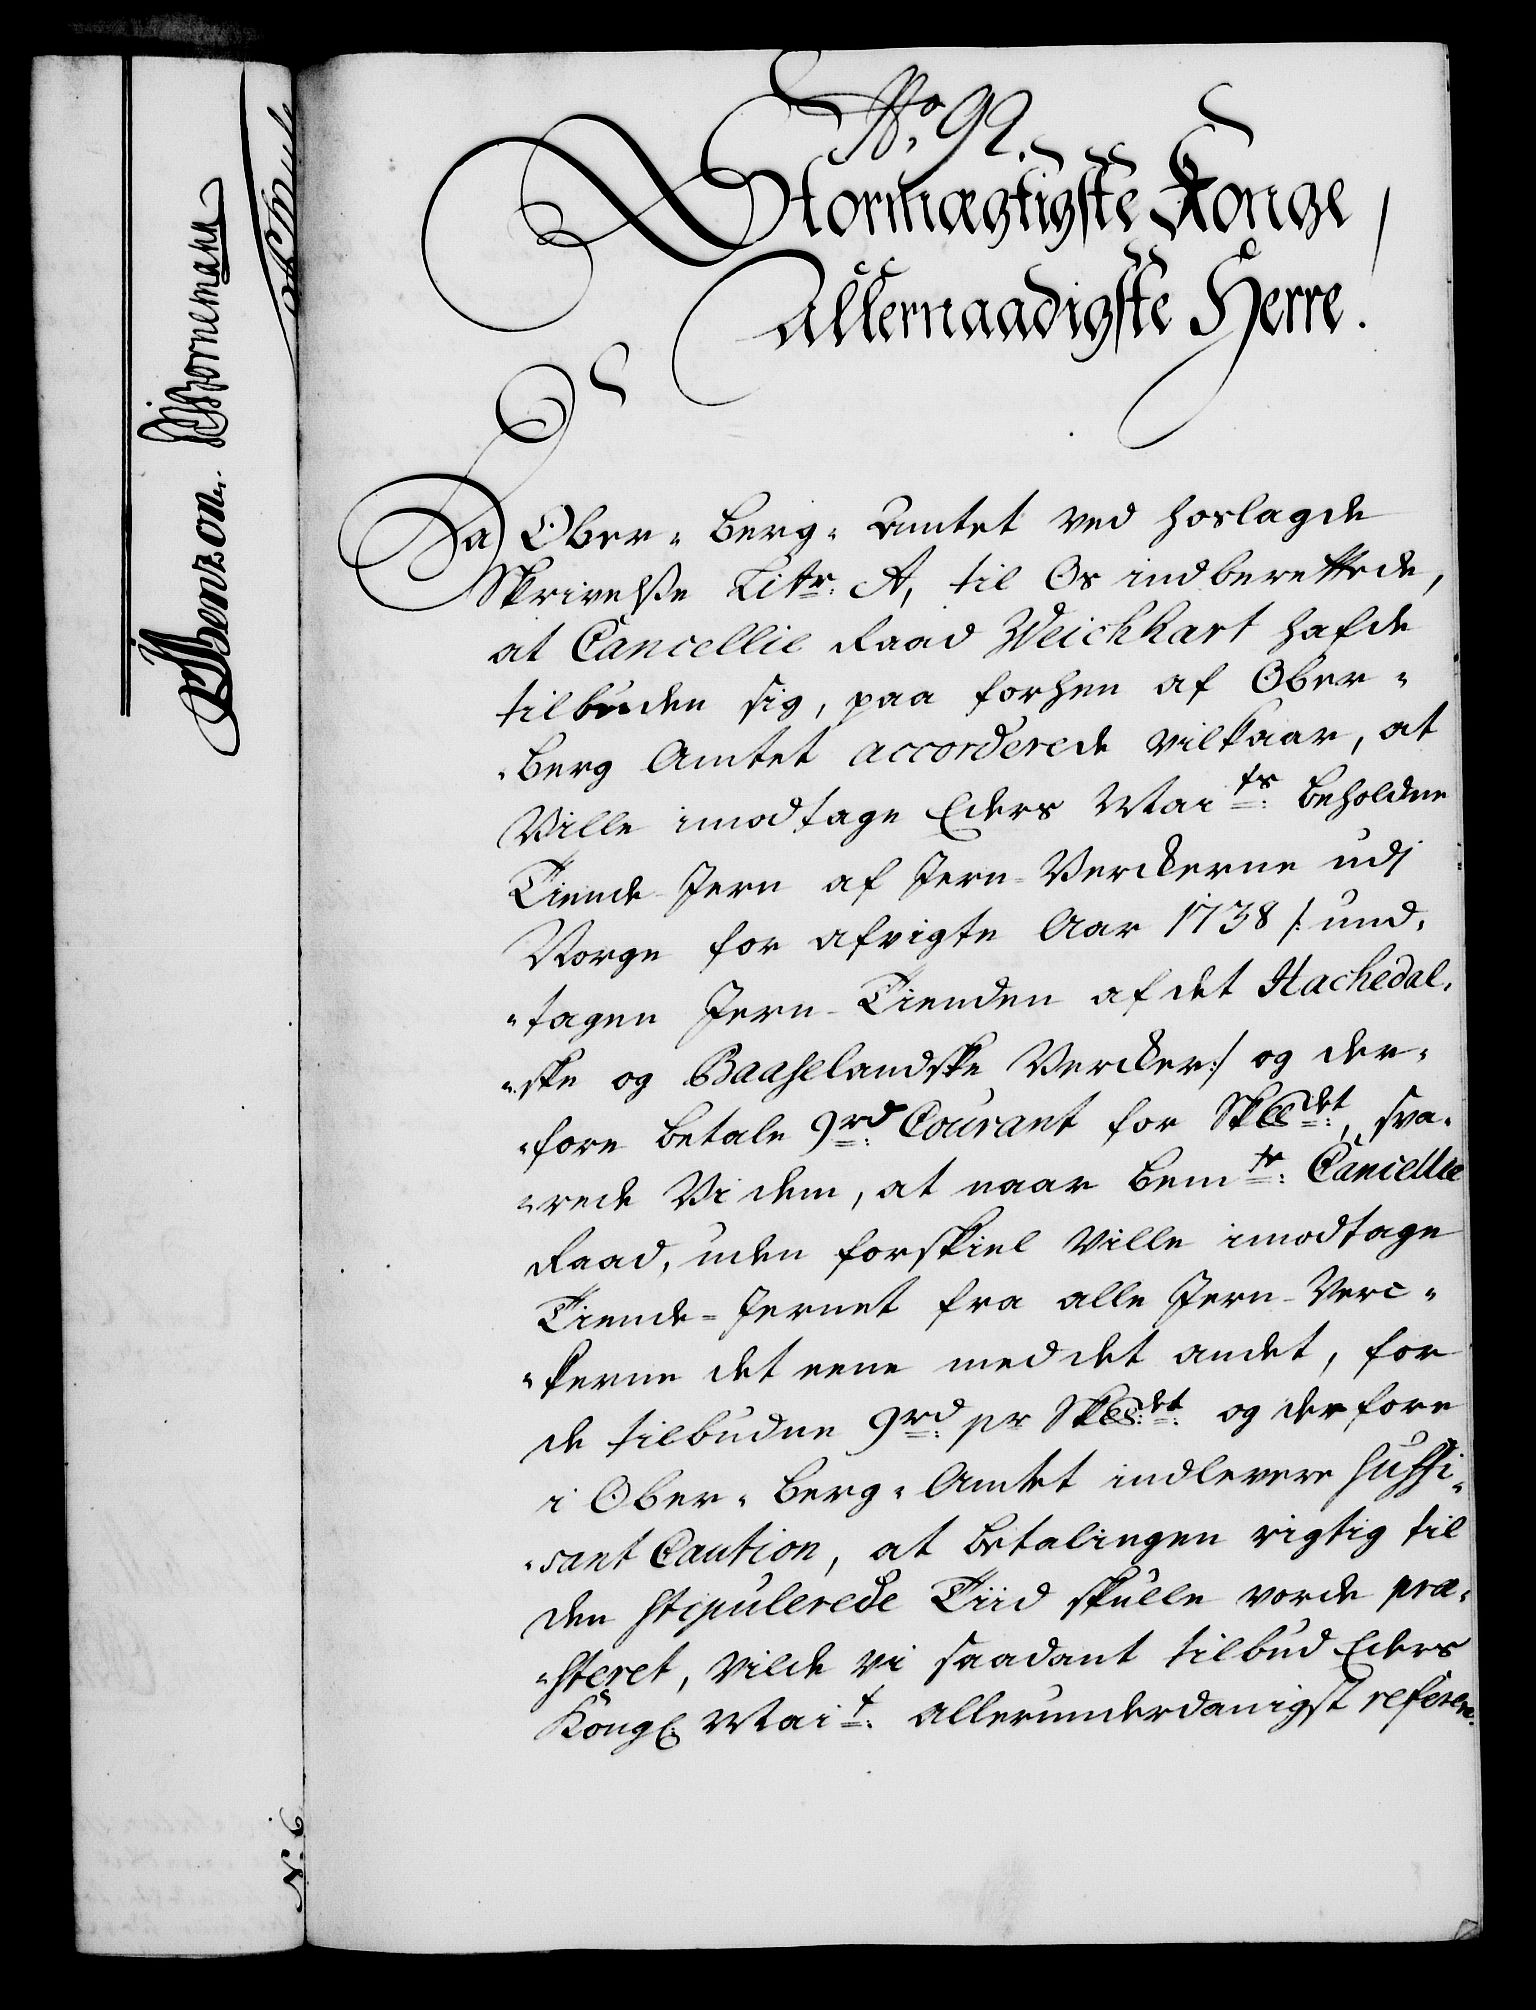 No. 92.
Stormægtigste Konge
Allernaadigste Herre.
Da Ober-Berg-Amtet ved hoslagde
Skrivelse Litr: A, til Os indberettede,
at Cancellie Raad Weichhart hafde
tilbuden sig, paa forhen af Ober-
-Berg Amtet accorderede vilkaar, at
Ville imodtage Eders Maits: beholdne
Tiende-Jern af Jern-Verckerne udi
Norge for afvigte Aar 1738 /: und-
-tagen Jern-Tienden af det Hachedal-
-ske og Baaselandske Vercker:/ og der-
-fore betale 9rd: Courant for Sk℔det:, sva-
-rede Vi dem, at naar bemte: Cancellie
Raad, uden forskiel Ville imodtage
Tiende-Jernet fra alle Jern-Verc-
-kerne det eene med det andet, for
de tilbudne 9rd: pr Sk℔det: og derfore
i Ober-Berg-Amtet indlevere suffi-
-sant Caution, at betalingen rigtig til
den stipulerede Tiid skulle vorde præ-
-steret, vilde vi saadant tilbud Eders
Kongl: Mait: allerunderdanigst refere-
Benzon. Bornemann
N. 6